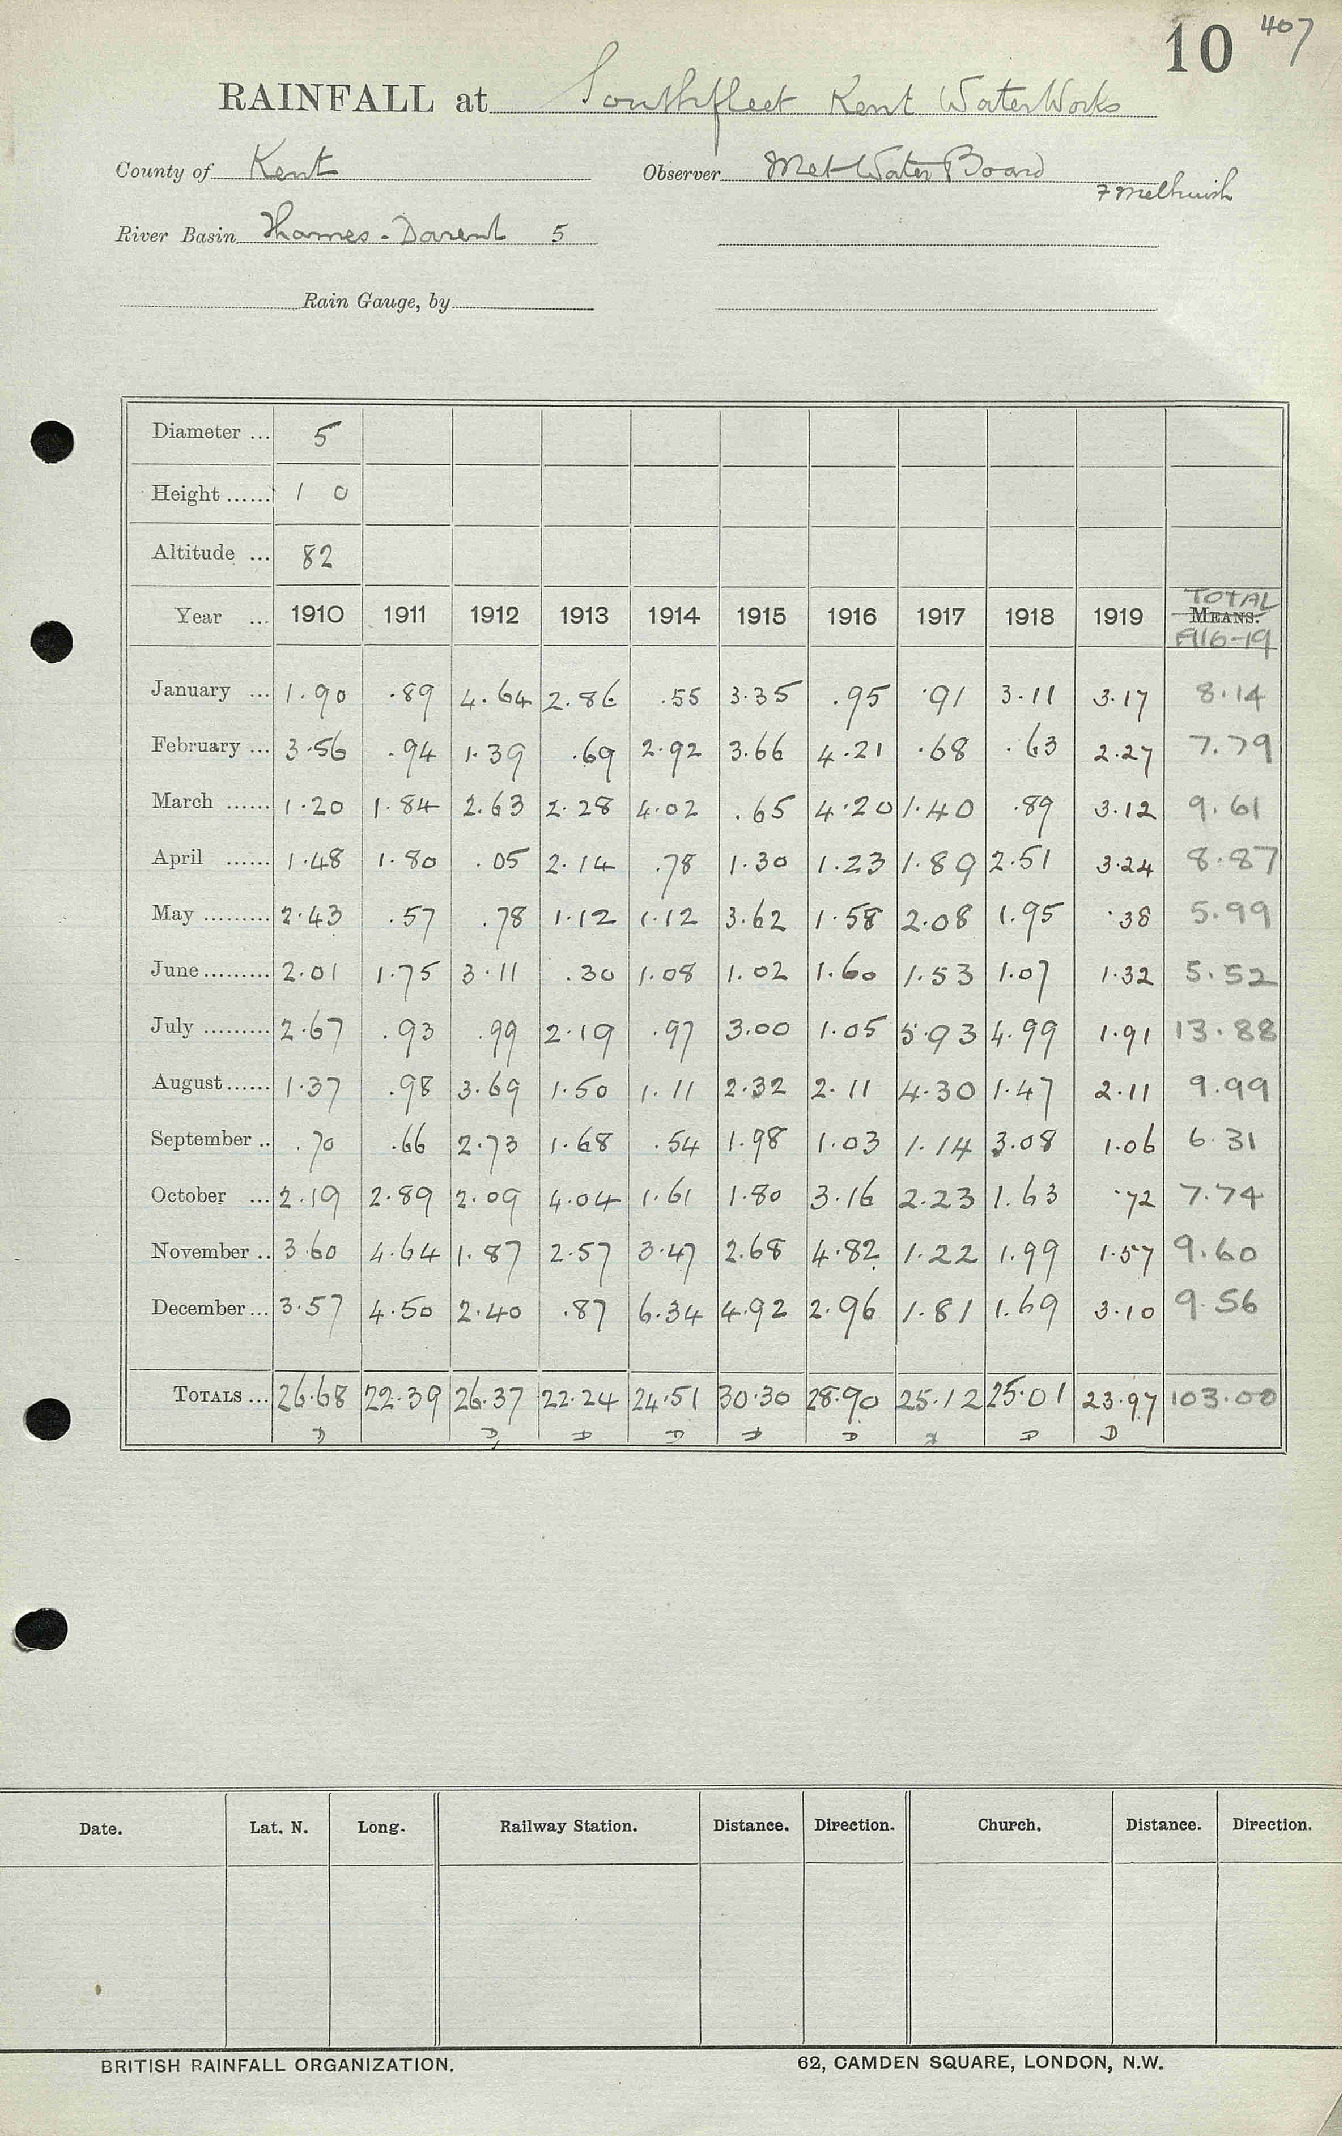 10 407
RAINFALL at Southfleet Kent WaterWorks
County of Kent Observer Met Water Board
F Melhuish
River Basin Thames - Darent 5
Rain Gauge, by
Diameter ... 5
Height ...... 1 0
Altitude ... 82
Year ... 1910 1911 1912 1913 1914 1915 1916 1917 1918 1919 TOTAL MEANS. 1916-19
January ... 1.90 .89 4.64 2.86 .55 3.35 .95 .91 3.11 3.17 8.14
February ... 3.56 .94 1.39 .69 2.92 3.66 4.21 .68 .63 2.27 7.79
March ...... 1.20 1.84 2.63 2.28 4.02 .65 4.20 1.40 .89 3.12 9.61
April ...... 1.48 1.80 .05 2.14 .78 1.30 1.23 1.89 2.51 3.24 8.87
May ......... 2.43 .57 .78 1.12 1.12 3.62 1.58 2.08 1.95 .38 5.99
June ......... 2.01 1.75 3.11 .30 1.08 1.02 1.60 1.53 1.07 1.32 5.52
July ......... 2.67 .93 .99 2.19 .97 3.00 1.05 5.93 4.99 1.91 13.88
August ...... 1.37 .98 3.69 1.50 1.11 2.32 2.11 4.30 1.47 2.11 9.99
September .. .70 .66 2.73 1.68 .54 1.98 1.03 1.14 3.08 1.06 6.31
October ... 2.19 2.89 2.09 4.04 1.61 1.80 3.16 2.23 1.63 .72 7.74
November .. 3.60 4.64 1.87 2.57 3.47 2.68 4.82 1.22 1.99 1.57 9.60
December ... 3.57 4.50 2.40 .87 6.34 4.92 2.96 1.81 1.69 3.10 9.56
TOTALS ... 26.68 22.39 26.37 22.24 24.51 30.30 28.90 25.12 25.01 23.97 103.00
D D D D D D D D
Date. Lat. N. Long. Railway Station. Distance. Direction. Church. Distance. Direction.
BRITISH RAINFALL ORGANIZATION. 62, CAMDEN SQUARE, LONDON, N.W.